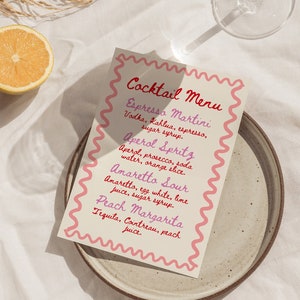 Cocktail Menu
Espresso Martini
Vodka, Kahlua, espresso,
sugar syrup.
Aperol Spritz
Aperol, prosecco, soda
water, orange slice.
Amaretto Sour
Amaretto, egg white, lime
juice, sugar syrup.
Peach Margarita
Tequila, Cointreau, peach
juice.